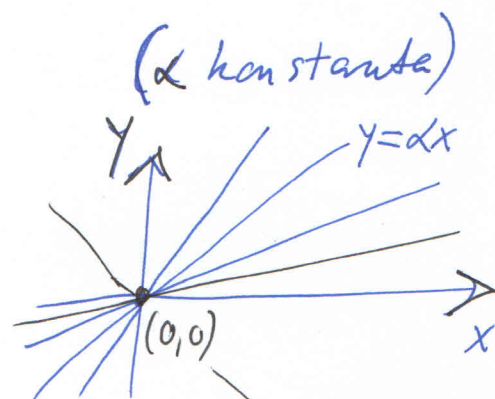 (α konstanta)
y
y=αx
(0,0)
x